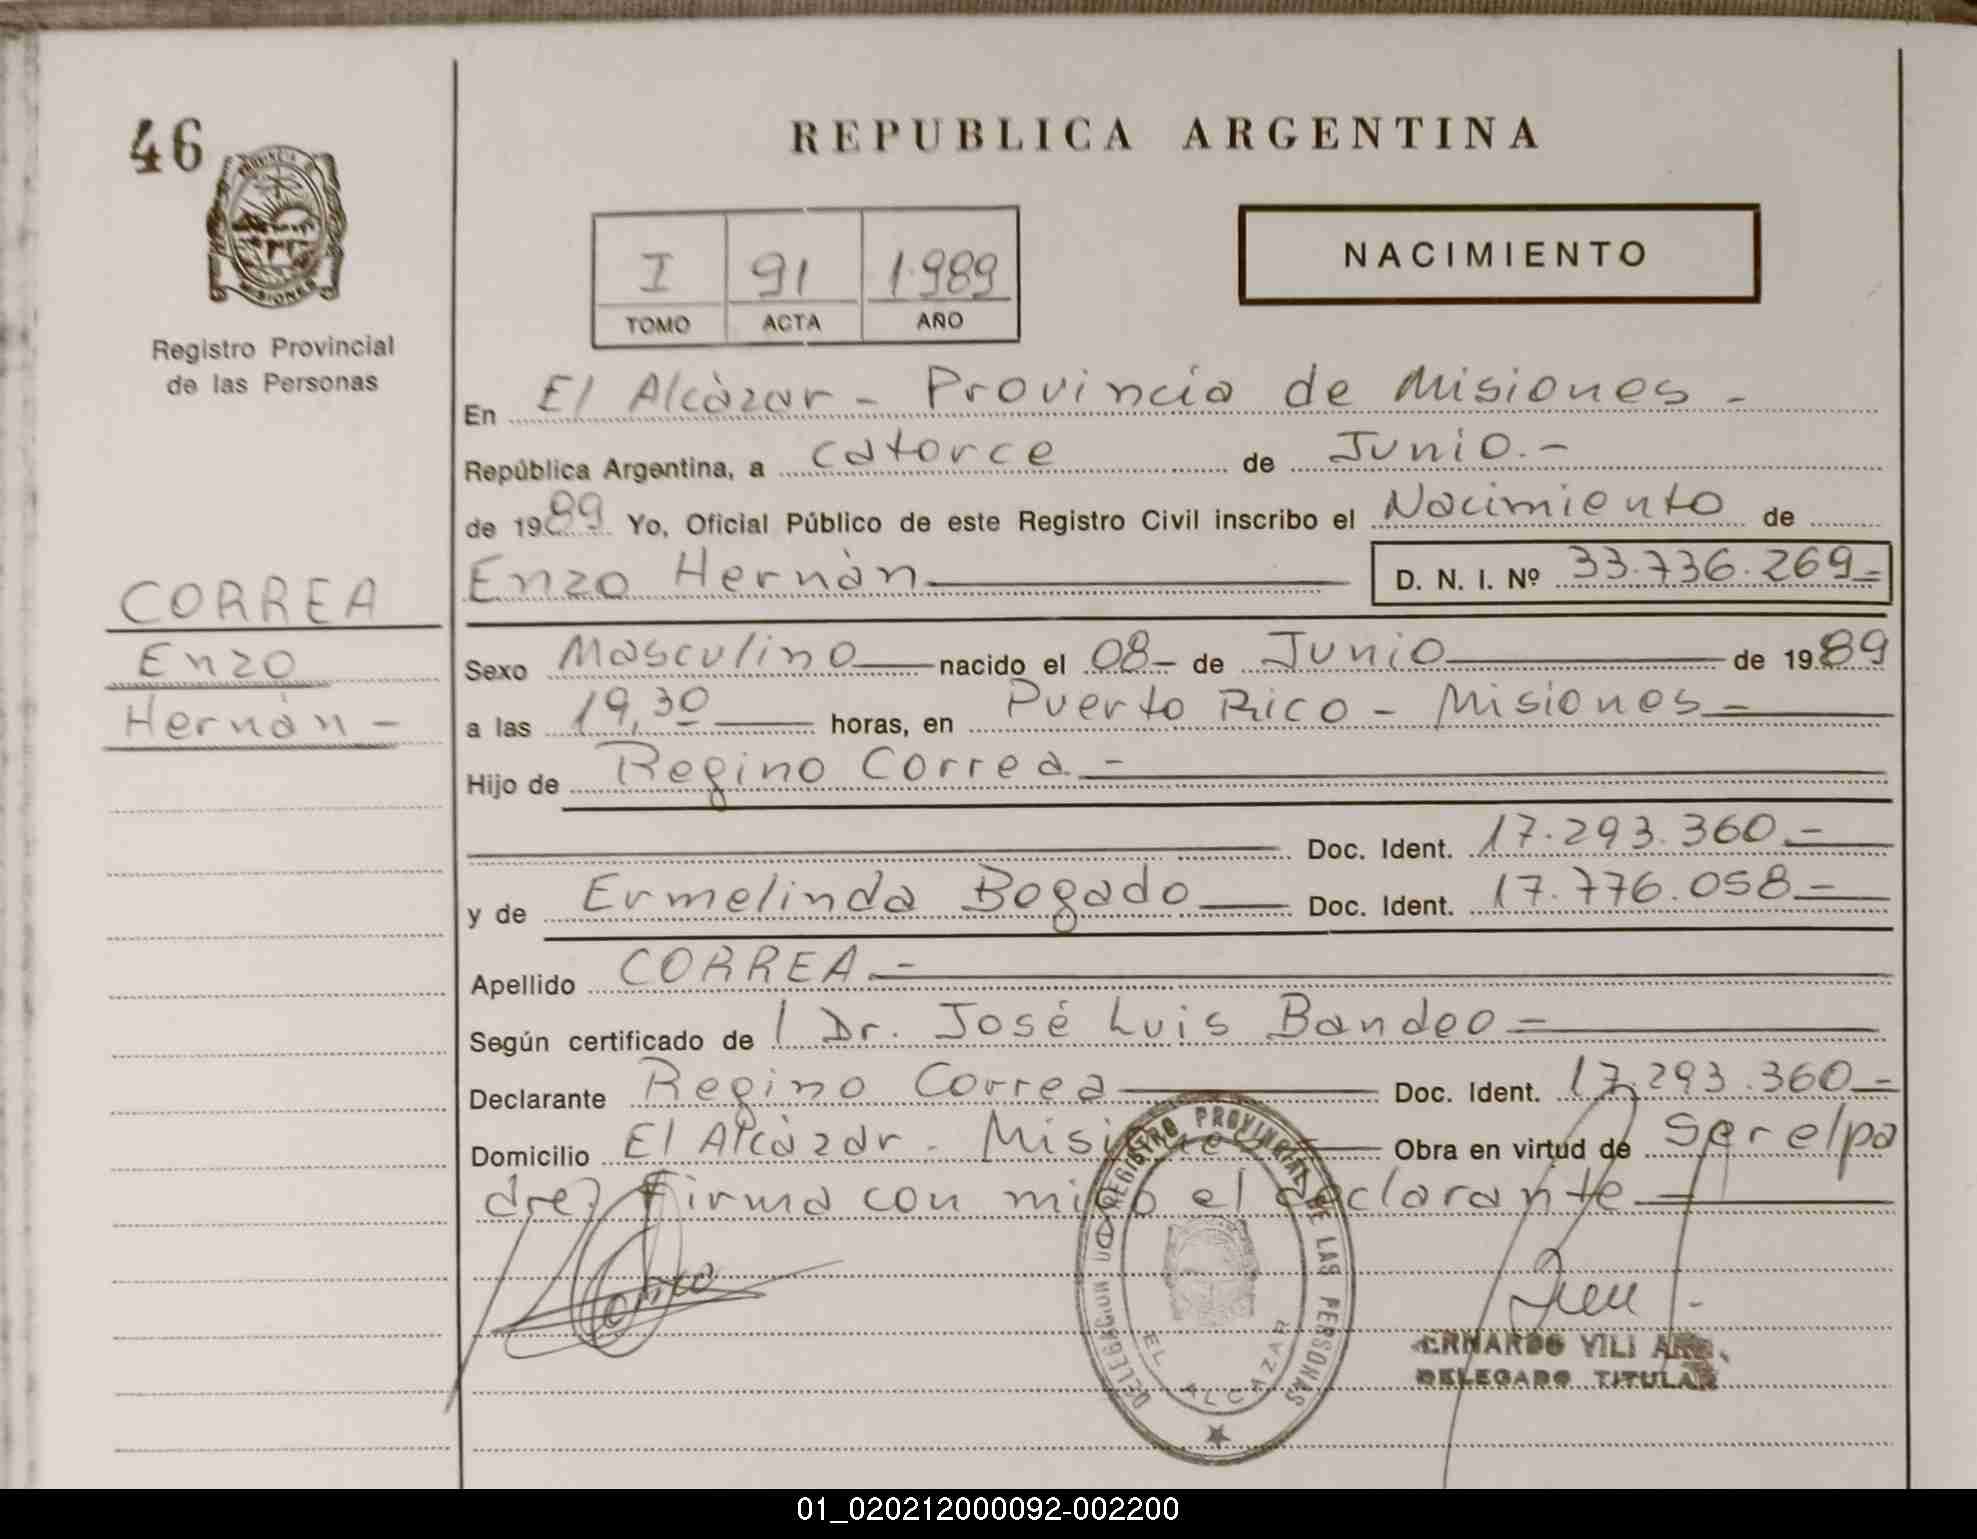 46
PROVINCIA
MISIONES
Registro Provincial
de las Personas
REPUBLICA ARGENTINA
I 91 1.989
TOMO ACTA AÑO
NACIMIENTO
En El Alcàzar - Provincia de Misiones -
República Argentina, a catorce de Junio.-
de 1989 Yo, Oficial Público de este Registro Civil inscribo el Nacimiento de
Enzo Hernàn D. N. I. Nº 33.736.269-
CORREA
Enzo
Hernàn -
Sexo Masculino nacido el 08- de Junio de 1989
a las 19,30 horas, en Puerto Rico - Misiones -
Hijo de Regino Correa -
Doc. Ident. 17.293.360.-
y de Ermelinda Bogado Doc. Ident. 17.776.058-
Apellido CORREA.-
Según certificado de l Dr. José Luis Bandeo -
Declarante Regino Correa Doc. Ident. 17.293.360-
Domicilio El Alcàzar - Misiones Obra en virtud de Ser el pa
dre, Firma con migo el declarante -
REGISTRO PROVINCIAL DE LAS PERSONAS
EL ALCAZAR
ERNARDO VILL
DELEGADO TITULAR
01_020212000092-002200